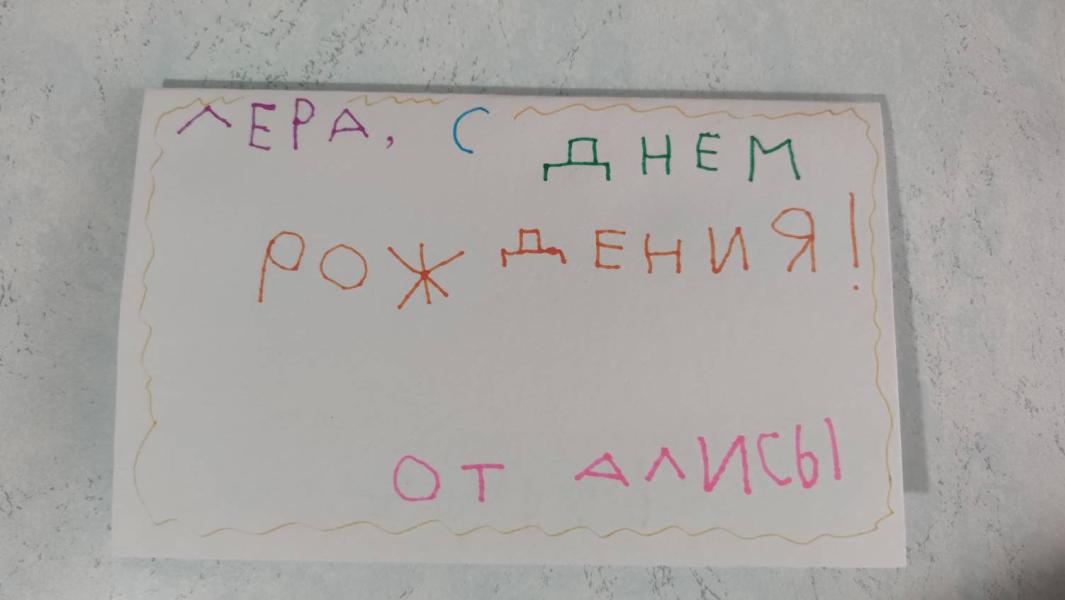 ЛЕРА, С ДНЕМ
РОЖДЕНИЯ!
ОТ АЛИСЫ